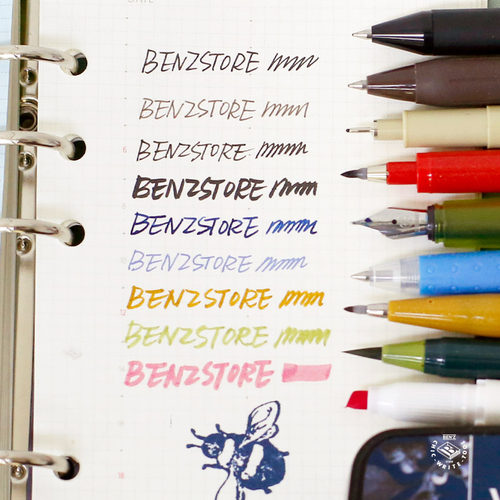 BENZSTORE
BENZSTORE
BENZSTORE
BENZSTORE
BENZSTORE
BENZSTORE
BENZSTORE
BENZSTORE
BENZSTORE
BENZ
CHIC·WRITE·JOB